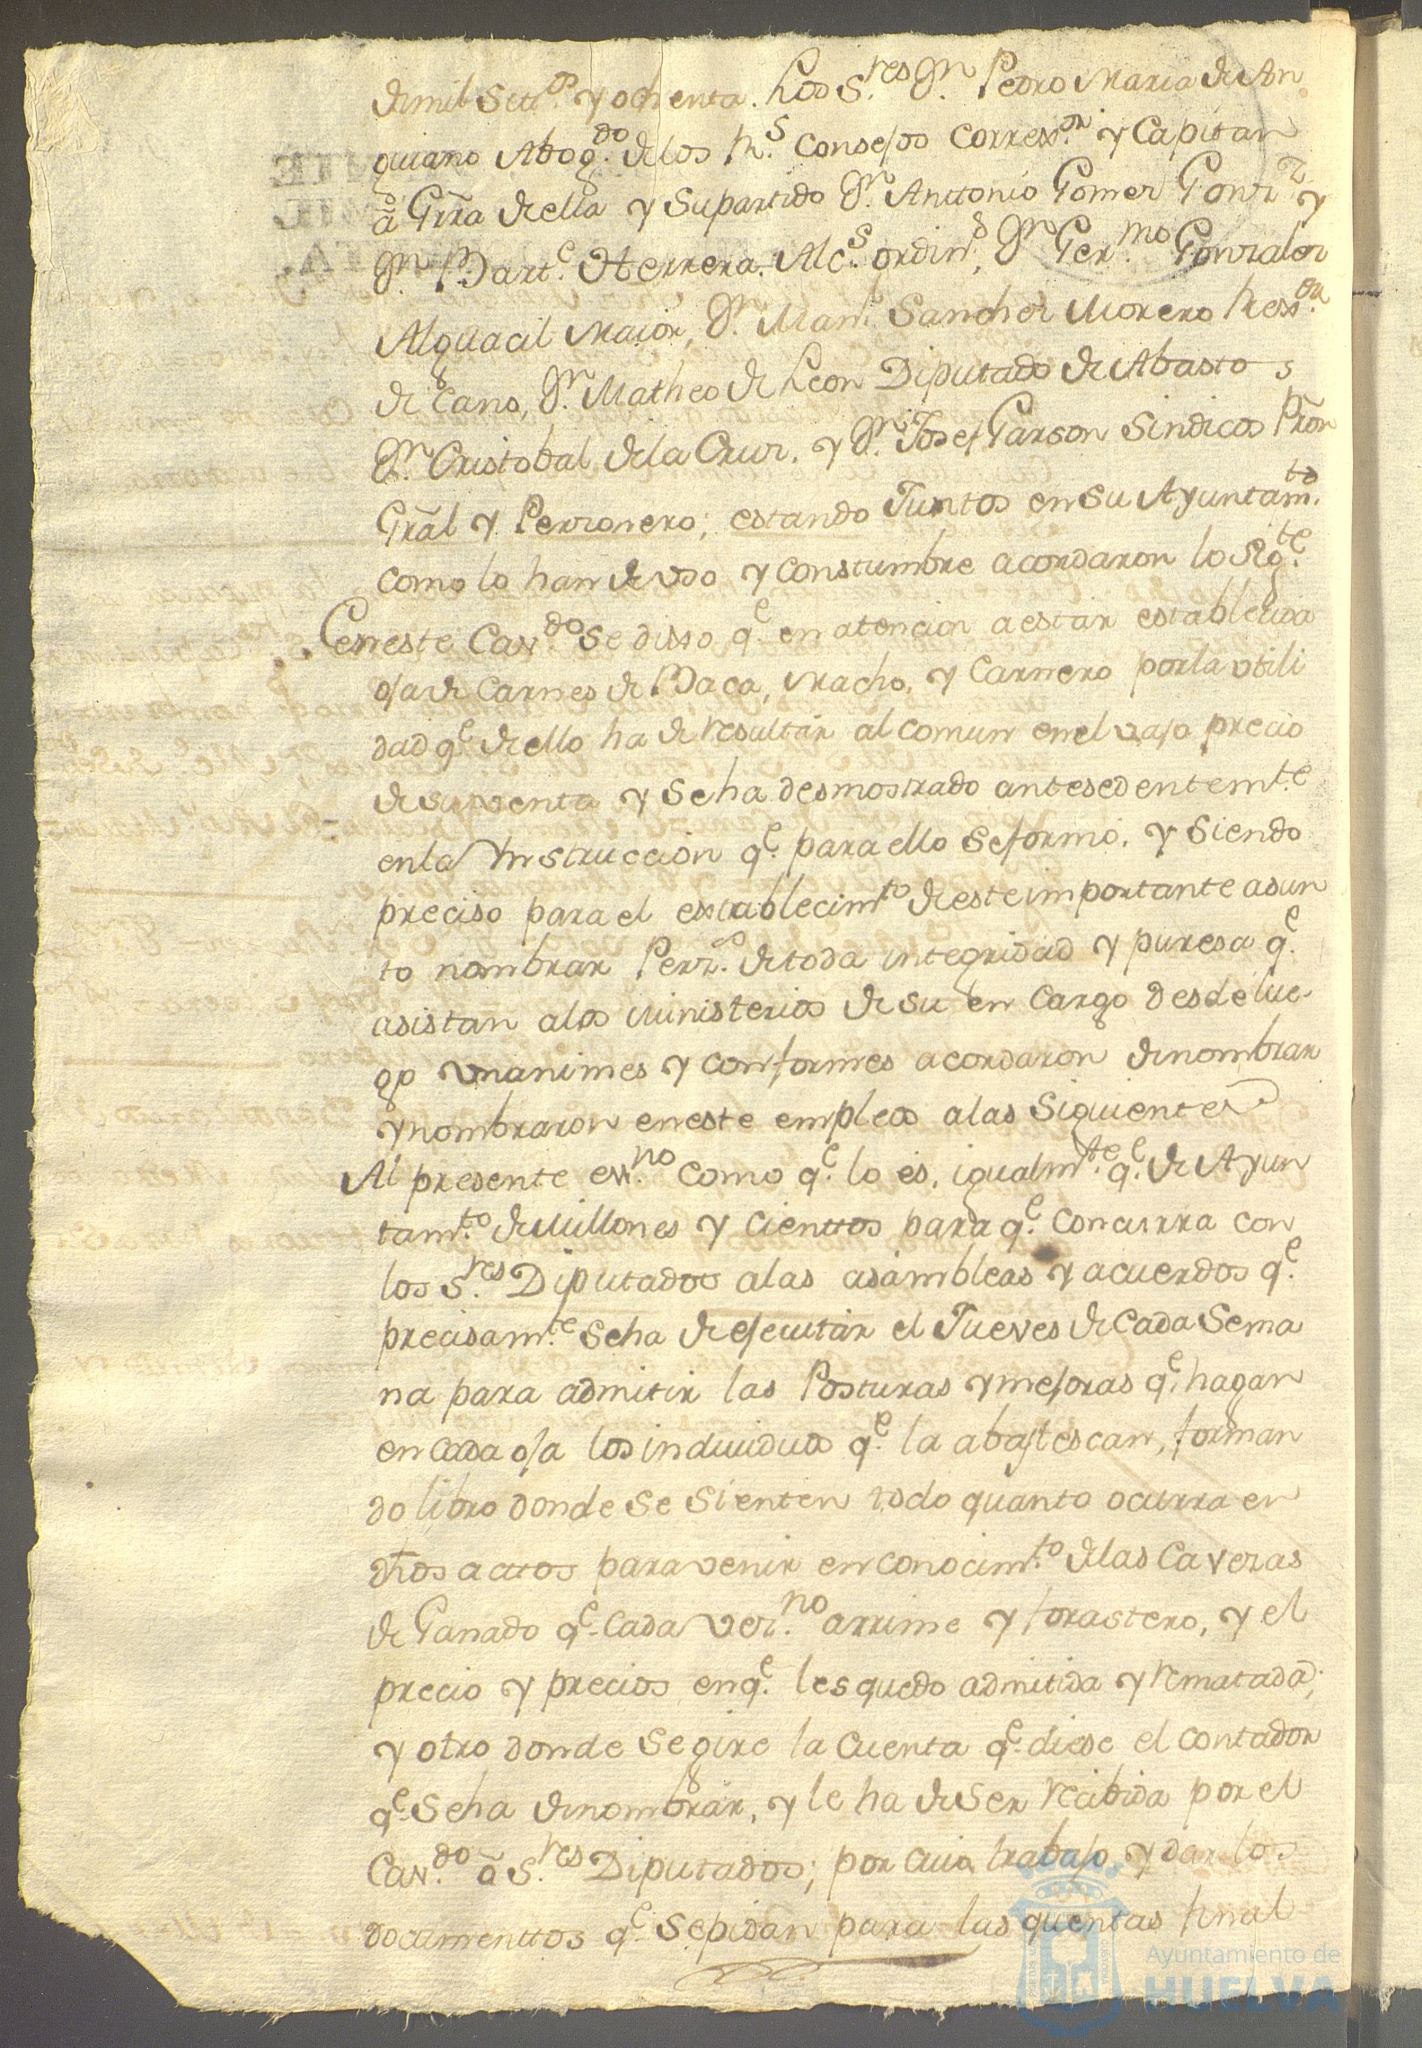 de mil Setos. y ochenta. Los S.res Dn. Pedro Maria de An
guiano Abog.do de los Rs. Consejos Correx.or y Capitan
â Grra de ella y Supartido Dn. Anttonio Gomez Gonz.z y
Dn. Bart.e Herrera. Alc.s ordin.s, Dn Ger.mo Gonzalez
Alguacil maior, Dn. Man.l Sanchez Moreno Rex.or
de Cano, Dn. Matheo de Leon Diputado de Abastos
Dn. Cristobal dela Cruz. y Dn. Josef Garson Sindicos Pron
Gral y Perzonero; estando Juntos en su Ayuntam.to
como lo han de uso y constumbre acordaron lo Sig.te
En este Cav.do se dixo q.e en atencion a estar establezida
oja de Carnes de Baca, Macho, y Carnero por la utili
dad q.e de ello ha de resultar al comun en el vajo precio
de su venta y se ha desmostrado antesedentem.te
en la Ynstruccion q.e para ello se formó. y siendo
preciso para el establecim.to de este importante asun
to nombrar Perz.s de toda integridad y puresa q.e
asistan alos ministerios de su en cargo desde lue-
go unanimes y conformes acordaron de nombrar
y nombraron en este empleo alas Siguientes
Al presente ess.no como q.e lo es, igualm.te q.e de Ayun
tam.to de Millones y cienttos para q.e concurra con
los S.res Diputados alas asambleas y acuerdos q.e
precisam.te se ha de ejecutar el Jueves de cada Sema
na para admitir las Posturas y mejoras q.e hagan
en cada oja los individuos q.e la abastescan, forman
do libro donde se sienten todo quanto ocurra en
dhos acttos para venir en conocim.to de las Cavezas
de Ganado q.e cada vez.no arrime y forastero, y el
precio y precios en q.e les quedo admitida y rematada;
y otro donde se gire la cuenta q.e diese el contador
q.e se ha de nombrar, y le ha de ser recibida por el
Cav.do ô S.res Diputados; por cuio trabajo y dar los
documenttos q.e se pidan para las quentas final
Ayuntamiento de
HUELVA